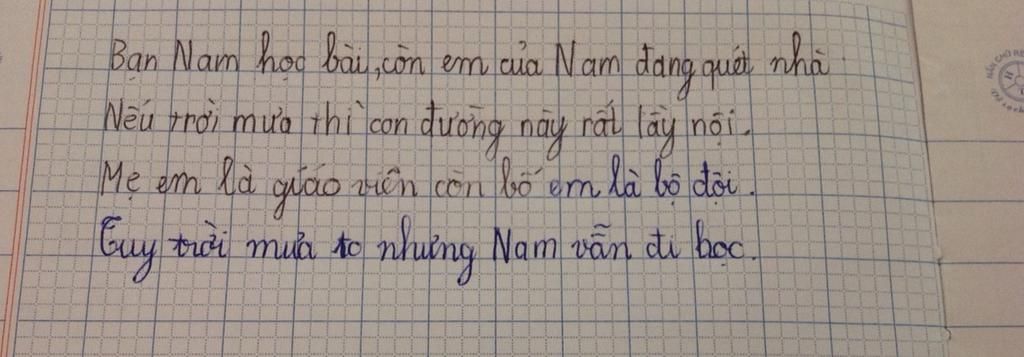 Bạn Nam học bài, còn em của Nam đang quét nhà
Nếu trời mưa thì con đường này rất lầy nội.
Mẹ em là giáo viên còn bố em là bộ đội.
Tuy trời mưa to nhưng Nam vẫn đi học.